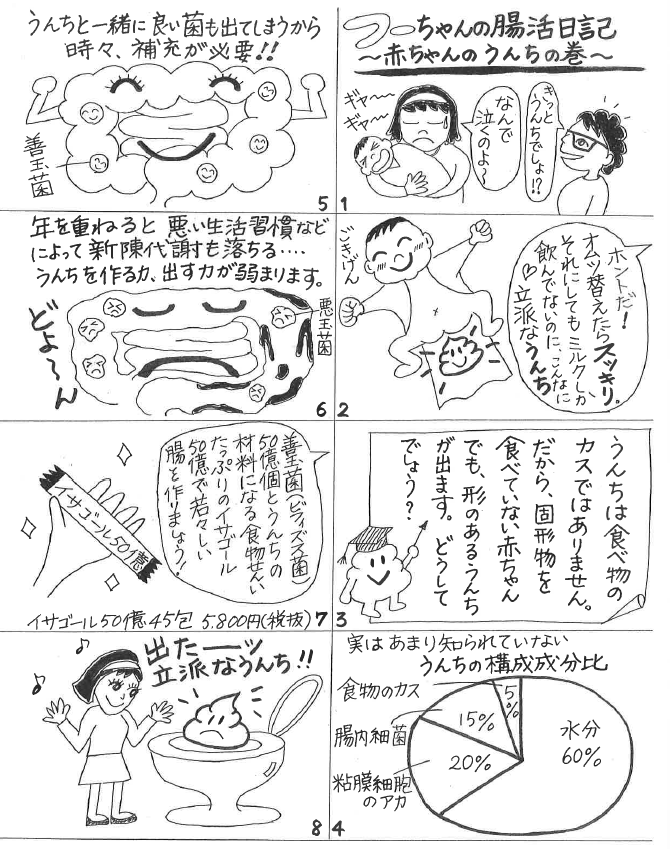 つーちゃんの腸活日記
～赤ちゃんのうんちの巻～
ギャ～
ギャ～
なんで
泣くのよ～
きっと
うんちでしょ!?
1
ごきげん
ホントだ！
オムツ替えたらスッキリ。
それにしてもミルクしか
飲んでないのに、こんなに
立派なうんち♡
2
うんちは食べ物の
カスではありません。
だから、固形物を
食べていない赤ちゃん
でも、形のあるうんち
が出ます。どうして
でしょう？
3
実はあまり知られていない
うんちの構成成分比
食物のカス
5%
腸内細菌
15%
水分
60%
20%
粘膜細胞
のアカ
4
うんちと一緒に良い菌も出てしまうから
時々、補充が必要!!
善玉菌
5
年を重ねると悪い生活習慣など
によって新陳代謝も落ちる‥‥
うんちを作る力、出す力が弱まります。
悪玉菌
どよ～ん
6
善玉菌(ビフィズス菌
50億個)とうんちの
材料になる食物せんい
たっぷりのイサゴール
50億で若々しい
腸を作りましょう！
イサゴール50億
イサゴール50億45包 5.800円(税抜)
7
出たーーッ
立派なうんち!!
8